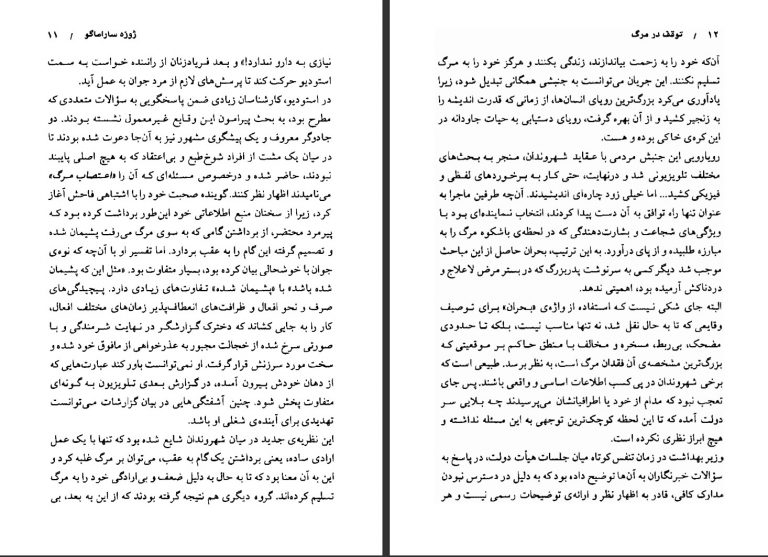 ژوزه ساراماگو / ۱۱
نیازی به دارو ندارد!» و بعد فریادزنان از راننده خواست به سمت
استودیو حرکت کند تا پرسش‌های لازم از مرد جوان به عمل آید.
در استودیو، کارشناسان زیادی ضمن پاسخگویی به سؤالات متعددی که
مطرح بود، به بحث پیرامون این وقایع غیرمعمول نشسته بودند. دو
جادوگر معروف و یک پیشگوی مشهور نیز به آن‌جا دعوت شده بودند تا
در میان یک مشت از افراد شوخ‌طبع و بی‌اعتقاد که به هیچ اصلی پایبند
نبودند، حاضر شده و درخصوص مسئله‌ای که آن را «اعتصاب مرگ»
می‌نامیدند اظهار نظر کنند. گوینده صحبت خود را با اشتباهی فاحش آغاز
کرد، زیرا از سخنان منبع اطلاعاتی خود این‌طور برداشت کرده بود که
پیرمرد محتضر، از برداشتن گامی که به سوی مرگ می‌رفت پشیمان شده
و تصمیم گرفته این گام را به عقب بردارد. اما تفسیر او با آن‌چه که نوه‌ی
جوان با خوشحالی بیان کرده بود، بسیار متفاوت بود. «مثل این که پشیمان
شده باشد» با «پشیمان شده» تفاوت‌های زیادی دارد. پیچیدگی‌های
صرف و نحو افعال و ظرافت‌های انعطاف‌پذیر زمان‌های مختلف افعال،
کار را به جایی کشاند که دخترک گزارشگر در نهایت شرمندگی و با
صورتی سرخ شده از خجالت مجبور به عذرخواهی از مافوق خود شده و
سخت مورد سرزنش قرار گرفت. او نمی‌توانست باور کند عبارت‌هایی که
از دهان خودش بیرون آمده، در گزارش بعدی تلویزیون به گونه‌ای
متفاوت پخش شود. چنین آشفتگی‌هایی در بیان گزارشات می‌توانست
تهدیدی برای آینده‌ی شغلی او باشد.
این نظریه‌ی جدید در میان شهروندان شایع شده بود که تنها با یک عمل
ارادی ساده، یعنی برداشتن یک گام به عقب، می‌توان بر مرگ غلبه کرد و
این به آن معنا بود که تا به حال به دلیل ضعف و بی‌ارادگی خود را به مرگ
تسلیم کرده‌اند. گروه دیگری هم نتیجه گرفته بودند که از این به بعد، بی
۱۲ / توقف در مرگ
آن‌که خود را به زحمت بیاندازند، زندگی بکنند و هرگز خود را به مرگ
تسلیم نکنند. این جریان می‌توانست به جنبشی همگانی تبدیل شود، زیرا
یادآوری می‌کرد بزرگ‌ترین رویای انسان‌ها، از زمانی که قدرت اندیشه را
به زنجیر کشید و از آن بهره گرفت، رویای دستیابی به حیات جاودانه در
این کره‌ی خاکی بوده و هست.
رویارویی این جنبش مردمی با عقاید شهروندان، منجر به بحث‌های
مختلف تلویزیونی شد و درنهایت، حتی کار به برخوردهای لفظی و
فیزیکی کشید... اما خیلی زود چاره‌ای اندیشیدند. آن‌چه طرفین ماجرا به
عنوان تنها راه توافق به آن دست پیدا کردند، انتخاب نماینده‌ای بود با
ویژگی‌های شجاعت و بشارت‌دهندگی که در لحظه‌ی باشکوه مرگ را به
مبارزه طلبیده و از پای درآورد. به این ترتیب، بحران حاصل از این مباحث
موجب شد دیگر کسی به سرنوشت پدربزرگ که در بستر مرض لاعلاج و
دردناکش آرمیده بود، اهمیتی ندهد.
البته جای شکی نیست که استفاده از واژه‌ی «بحران» برای توصیف
وقایعی که تا به حال نقل شد، نه تنها مناسب نیست، بلکه تا حدودی
مضحک، بی‌ربط، مسخره و مخالف با منطق حاکم بر موقعیتی که
بزرگ‌ترین مشخصه‌ی آن فقدان مرگ است، به نظر برسد. طبیعی است که
برخی شهروندان در پی کسب اطلاعات اساسی و واقعی باشند. پس جای
تعجب نبود که مدام از خود یا اطرافیانشان می‌پرسیدند چه بلایی سر
دولت آمده که تا این لحظه کوچک‌ترین توجهی به این مسئله نداشته و
هیچ ابراز نظری نکرده است.
وزیر بهداشت در زمان تنفس کوتاه میان جلسات هیأت دولت، در پاسخ به
سؤالات خبرنگاران به آن‌ها توضیح داده بود که به دلیل در دسترس نبودن
مدارک کافی، قادر به اظهار نظر و ارائه‌ی توضیحات رسمی نیست و هر